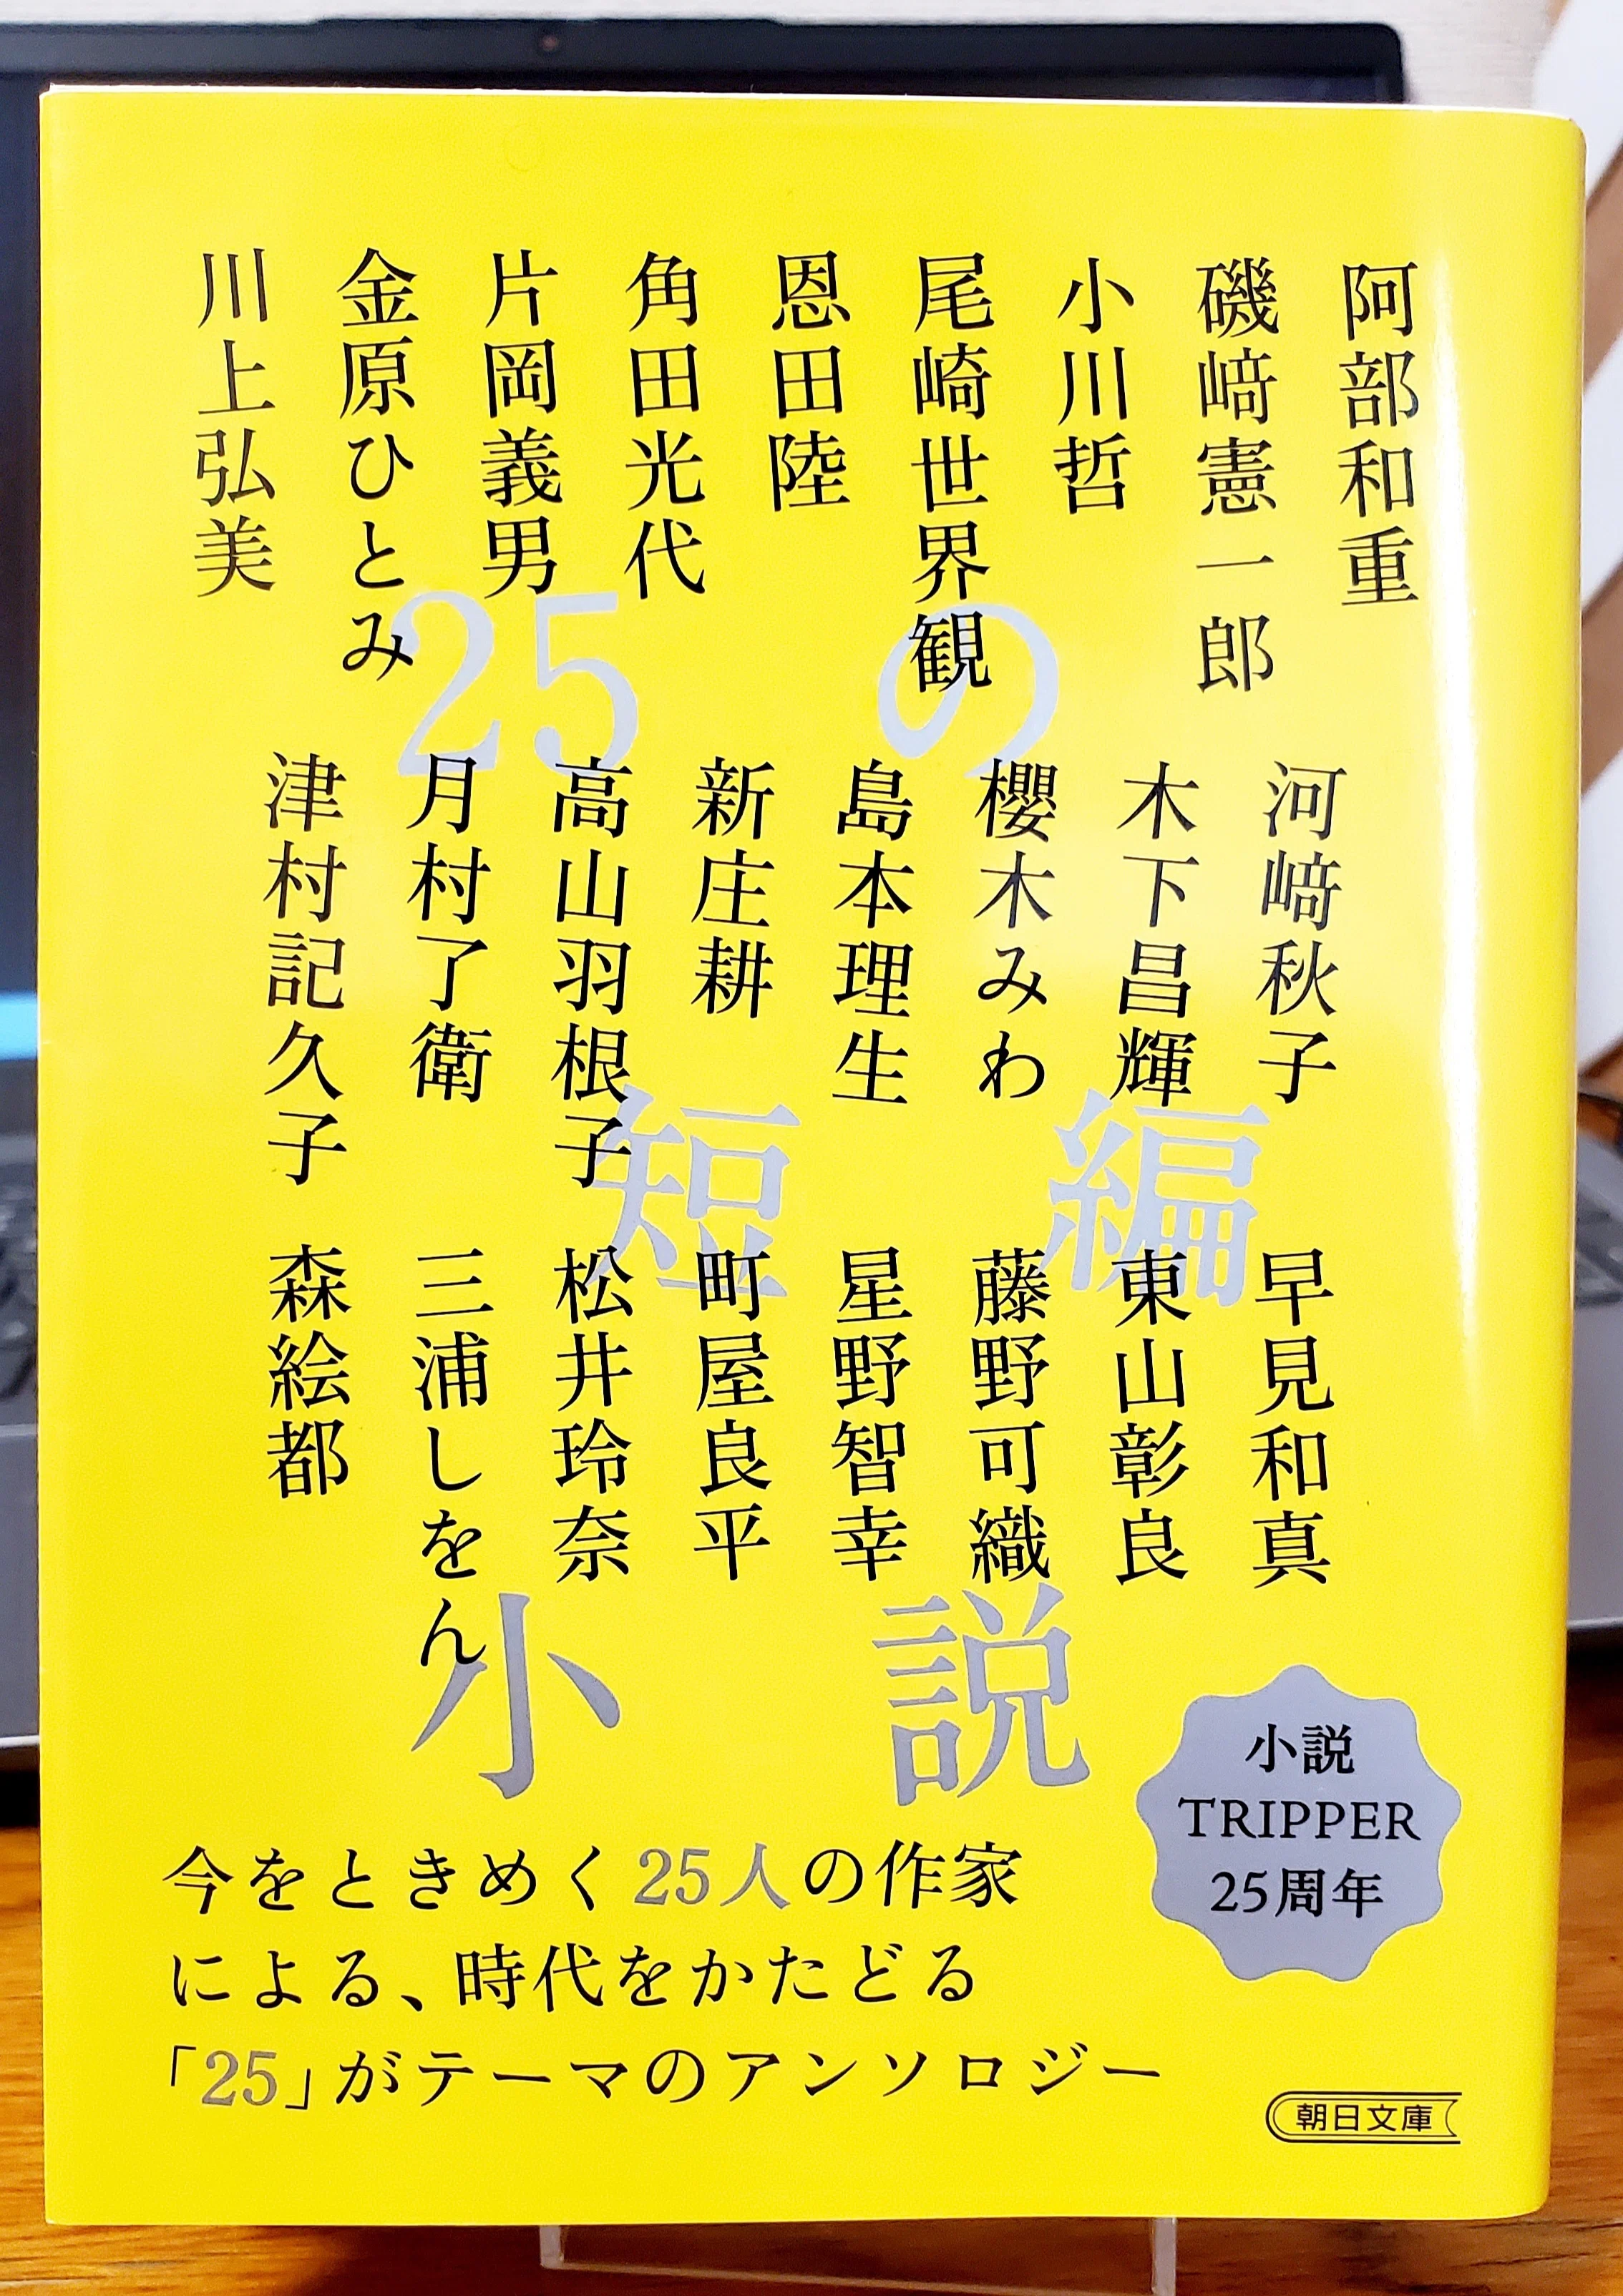 阿部和重
磯﨑憲一郎
小川哲
尾崎世界観
恩田陸
角田光代
片岡義男
金原ひとみ
川上弘美
25の
河﨑秋子
木下昌輝
櫻木みわ
島本理生
新庄耕
高山羽根子
月村了衛
津村記久子
短編
早見和真
東山彰良
藤野可織
星野智幸
町屋良平
松井玲奈
三浦しをん
森絵都
小説
小説
TRIPPER
25周年
今をときめく25人の作家
による、時代をかたどる
「25」がテーマのアンソロジー
朝日文庫